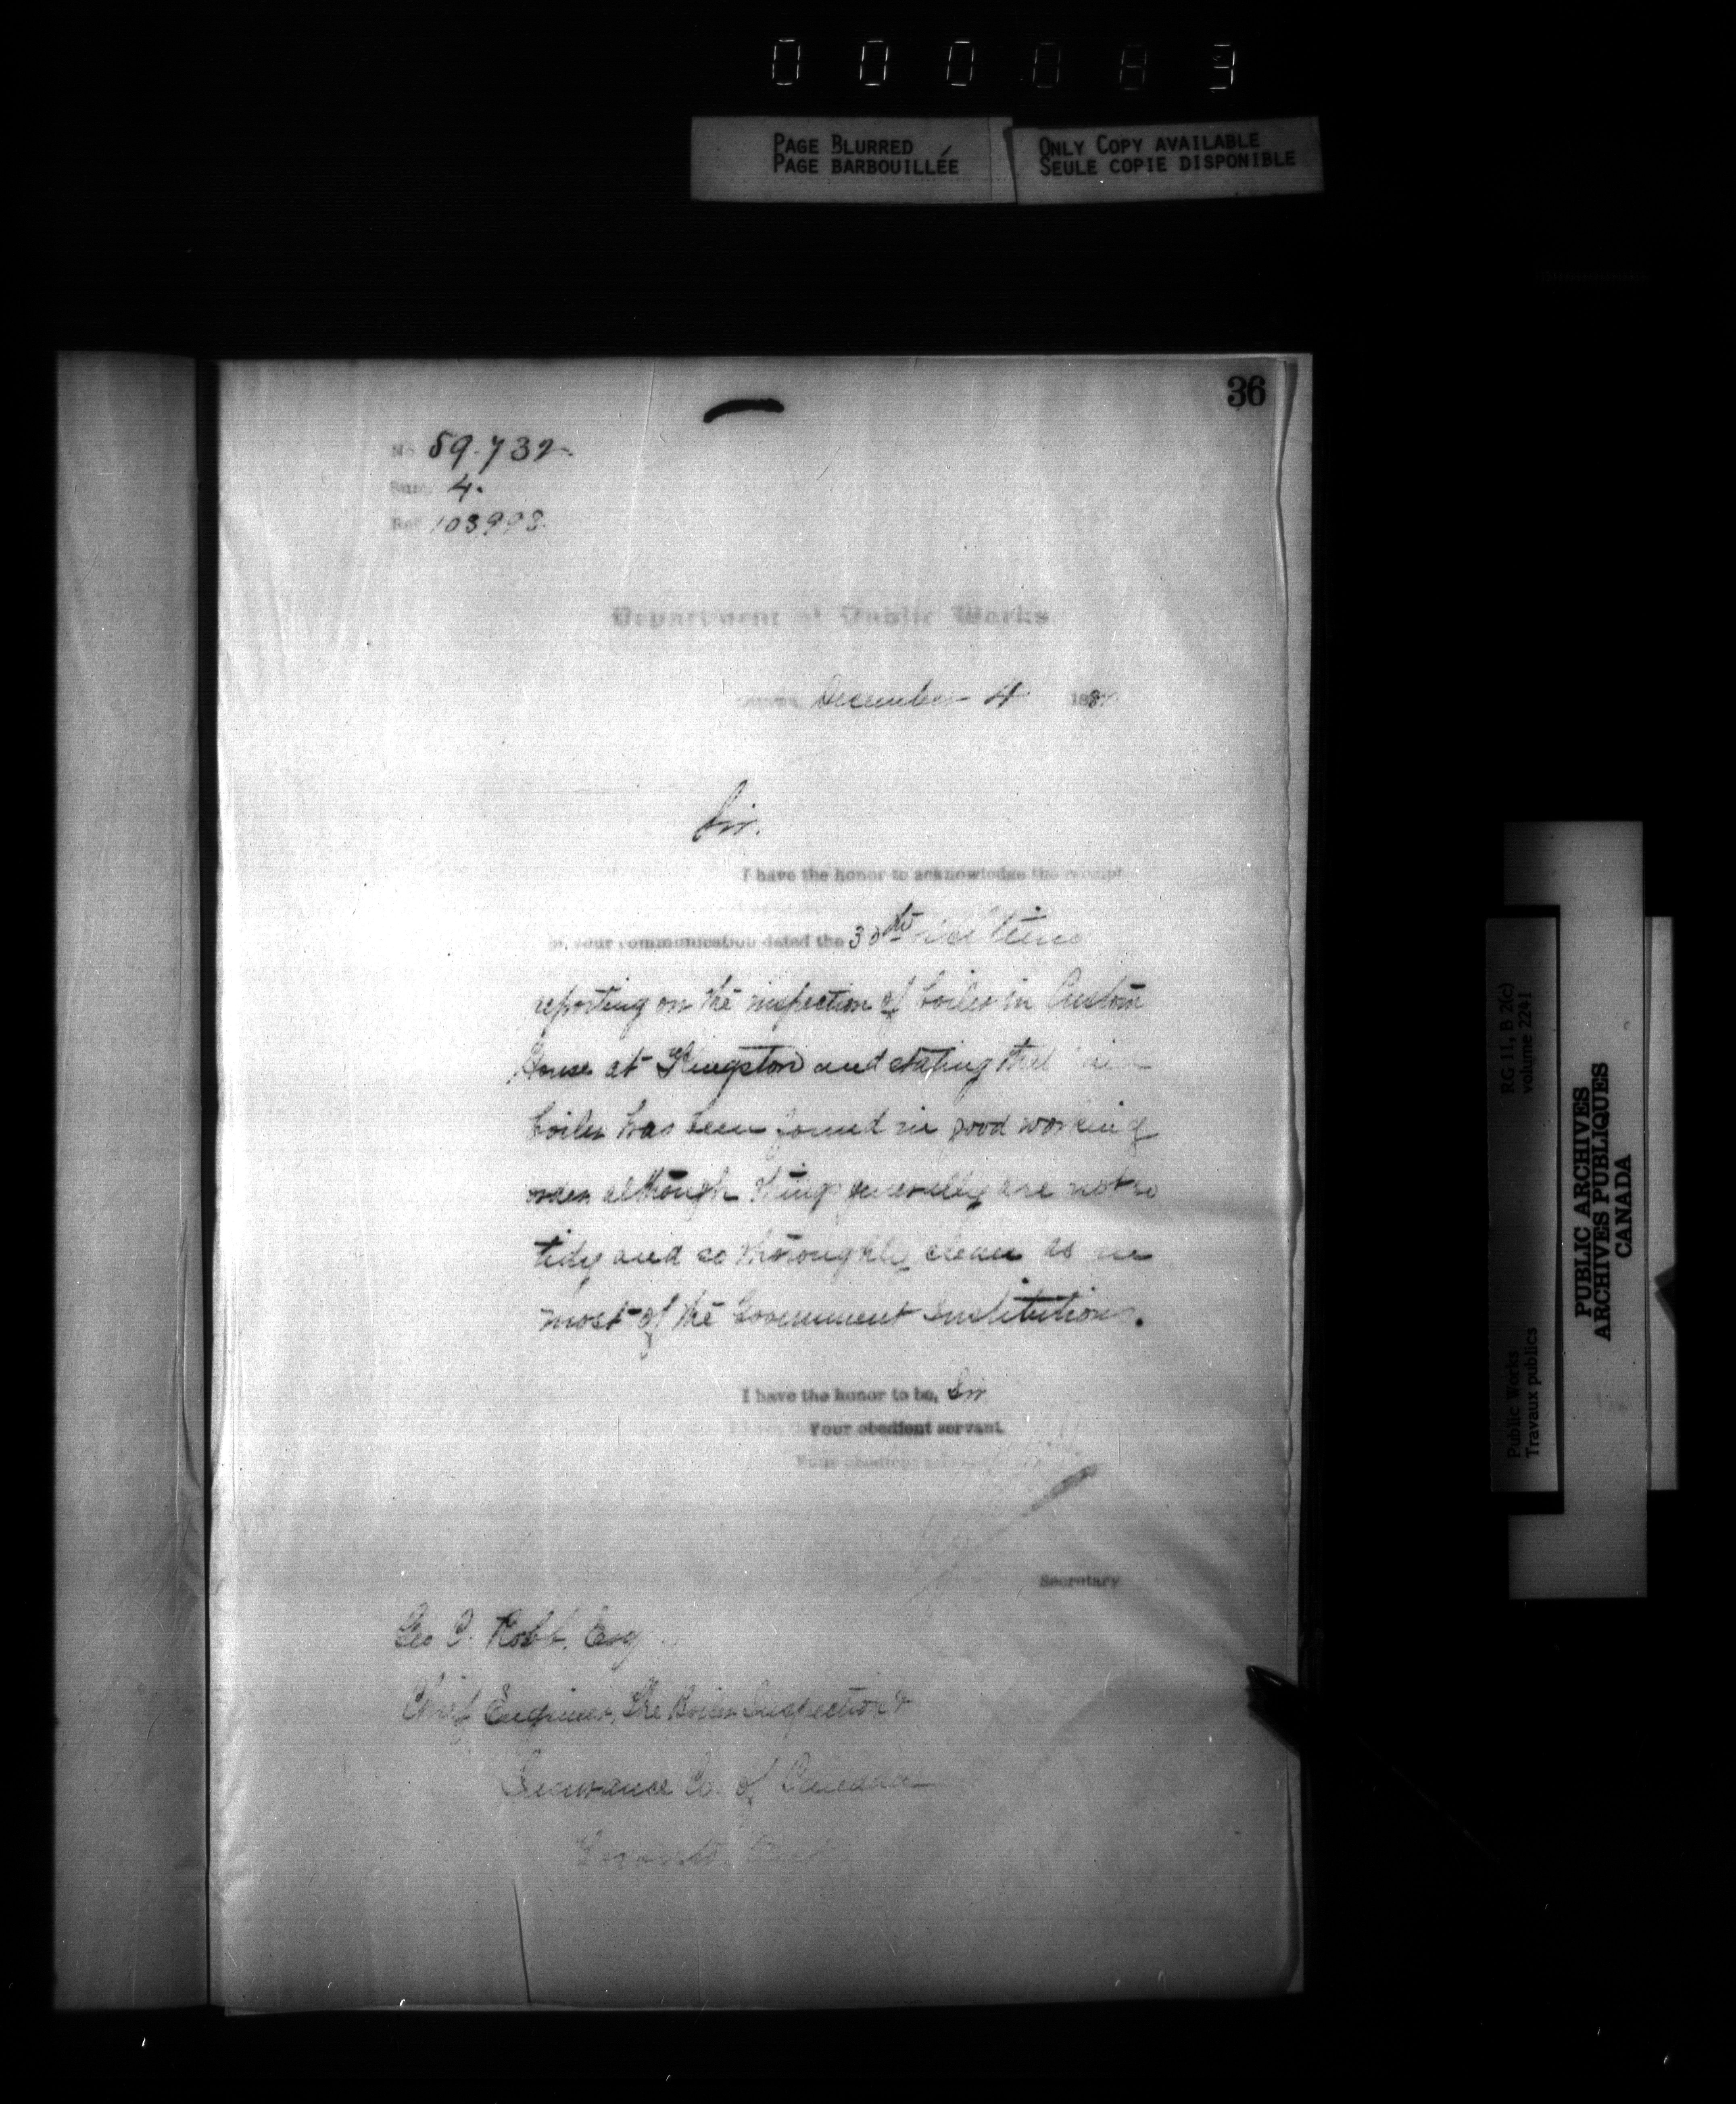 000083
PAGE BLURRED
PAGE BARBOUILLÉE
ONLY COPY AVAILABLE
SEULE COPIE DISPONIBLE
36
No 59.732
4.
Ref 103998
Department of Public Works
December 4 188
Sir.
I have the honor to acknowledge the receipt
of your communication dated the 30th ultimo
reporting on the inspection of boiler in Custom
House at Kingston and stating that
boiler has been found in good working
order although things generally are not so
tidy and so thoroughly clean as in
most of the Government Institutions.
I have the honor to be, Sir
Your obedient servant,
Your obedient servant
Secretary
Geo C. Robb. Esq
Chief Engineer, The Boiler Inspection &
Insurance Co. of Canada
Toronto
RG 11, B 2(c)
volume 2241
Public Works
Travaux publics
PUBLIC ARCHIVES
ARCHIVES PUBLIQUES
CANADA